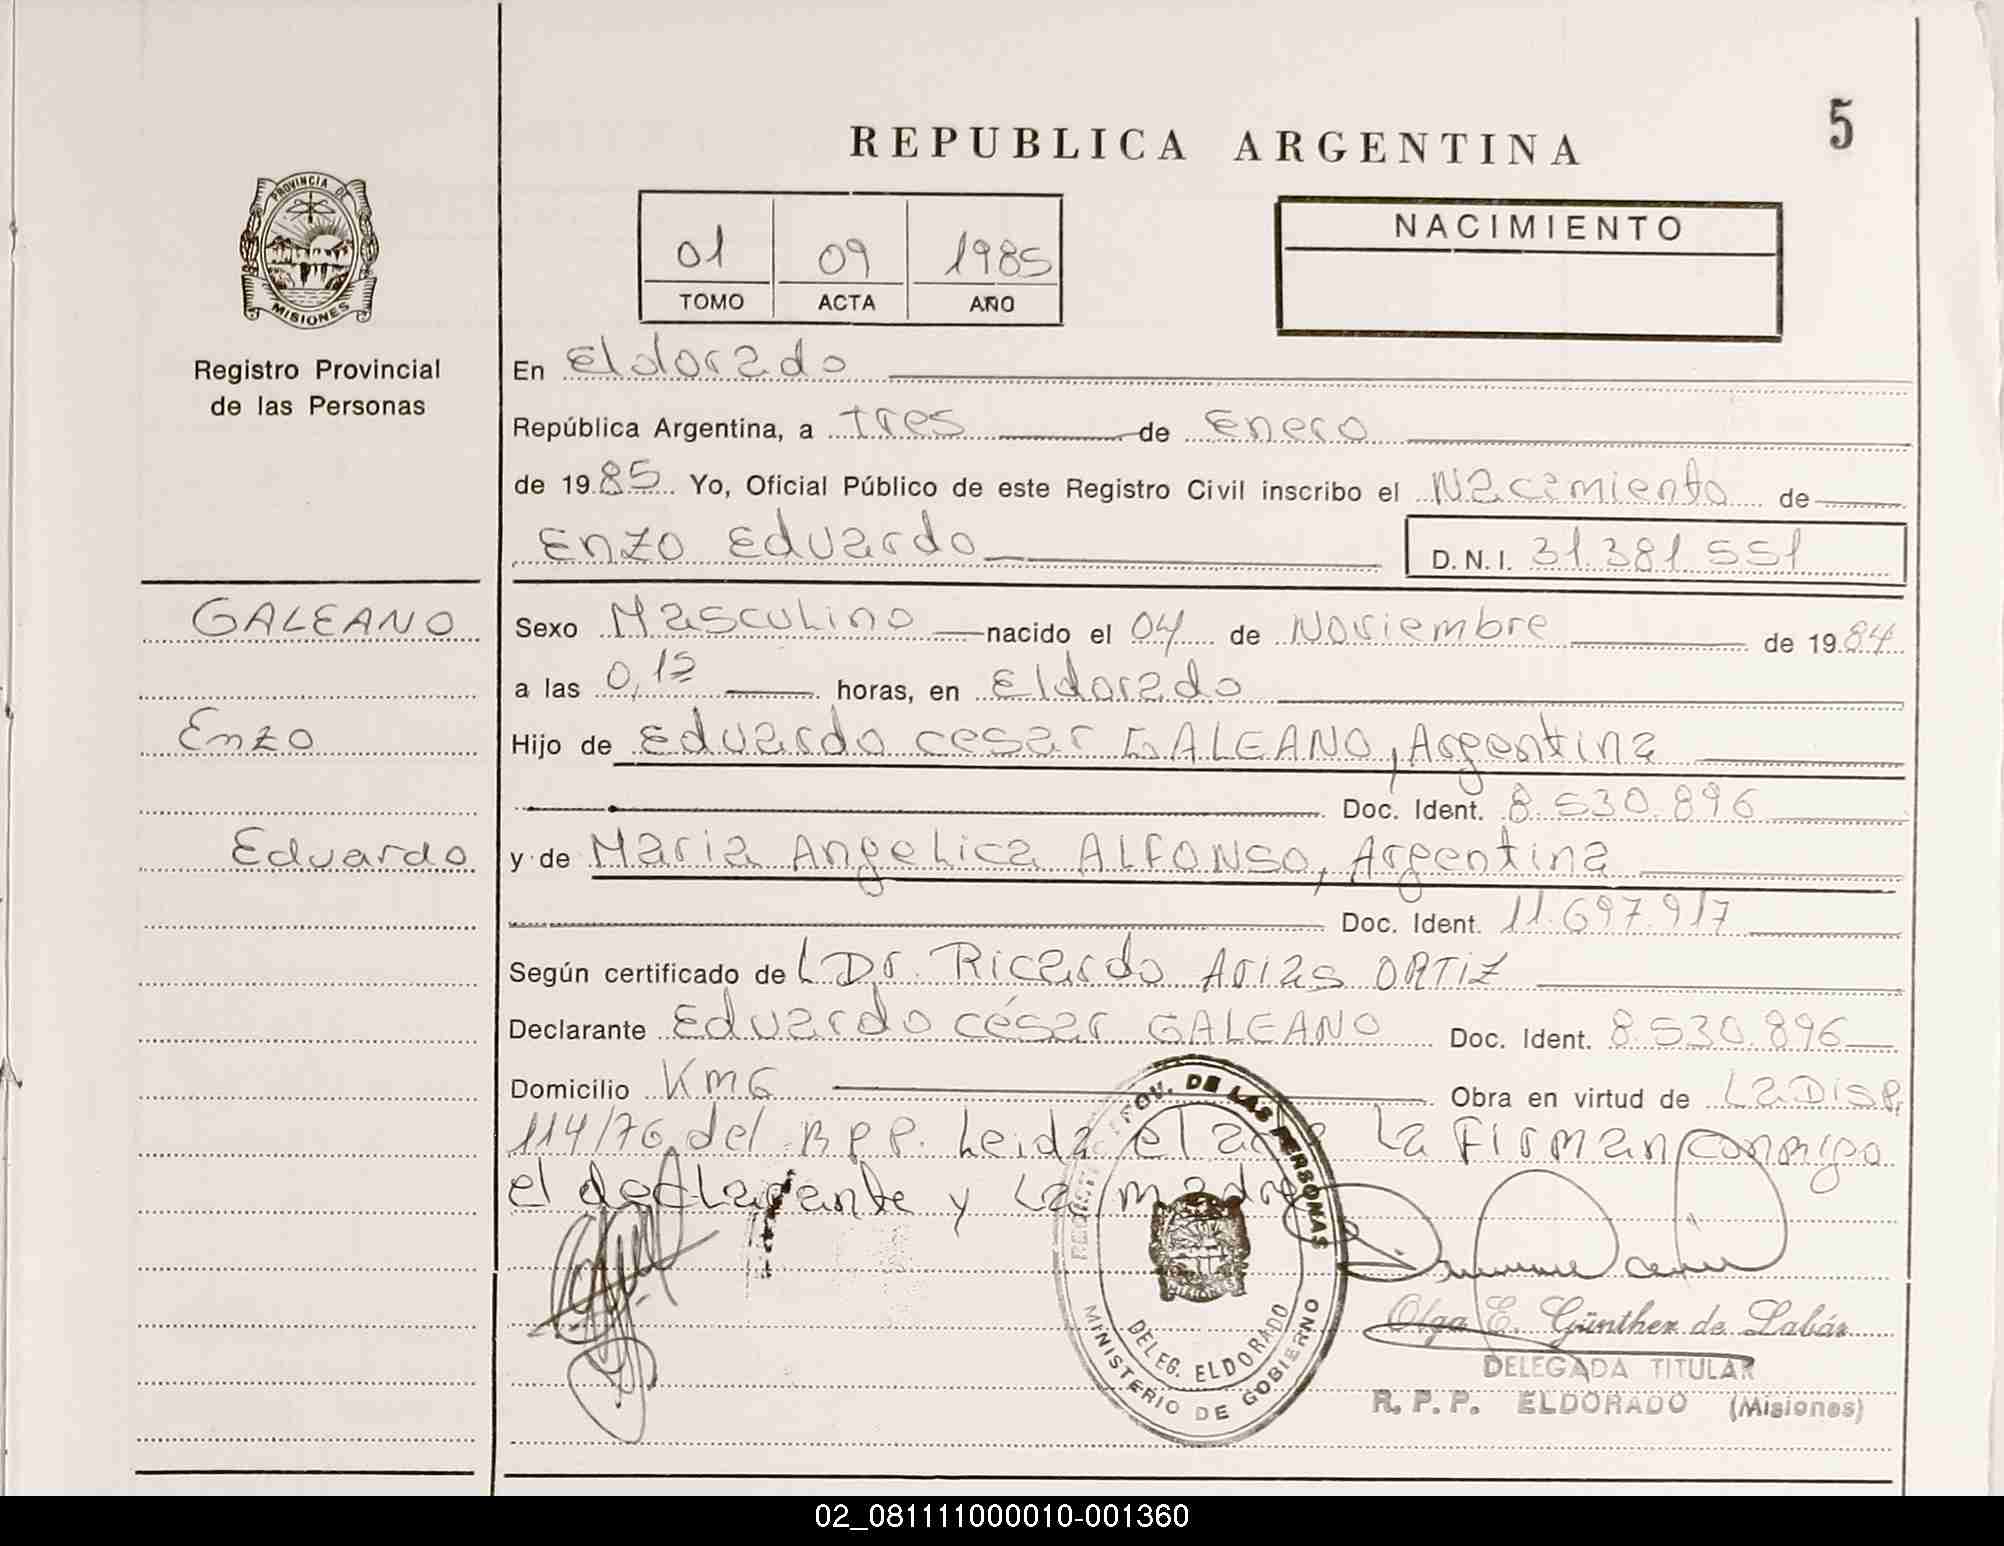 REPUBLICA ARGENTINA
5
PROVINCIA DE
MISIONES
Registro Provincial
de las Personas
01 09 1985
TOMO ACTA AÑO
NACIMIENTO
En Eldorado
República Argentina, a tres de Enero
de 1985 Yo, Oficial Público de este Registro Civil inscribo el Nacimiento de
Enzo Eduardo D.N.I. 31.381.551
GALEANO
Enzo
Eduardo
Sexo Masculino nacido el 04 de Noviembre de 1984
a las horas, en Eldorado
Hijo de Eduardo cesar GALEANO, Argentina
Doc. Ident. 8.530.896
y de Maria Angelica ALFONSO, Argentina
Doc. Ident. 11.697.917
Según certificado de L Dr. Ricardo Arias ORTIZ
Declarante Eduardo césar GALEANO Doc. Ident. 8.530.896
Domicilio Km Obra en virtud de La Disp.
114/76 del Leida el La Firman conmigo
el y La madre
DE LAS PERSONAS
DELEG. ELDORADO
MINISTERIO DE GOBIERNO
Olga E. Günther de Labár
DELEGADA TITULAR
R.P.P. ELDORADO (Misiones)
02_081111000010-001360